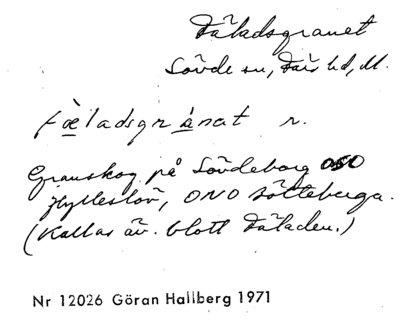 Fäladsgranet
Sövde sn, Färs hd, M.
fæladsgrànat n.
Granskog på Sövdeborg OSO
Hylleslöv, ONO Sötteberga.
(Kallas äv. blott Fäladen.)
Nr 12026 Göran Hallberg 1971